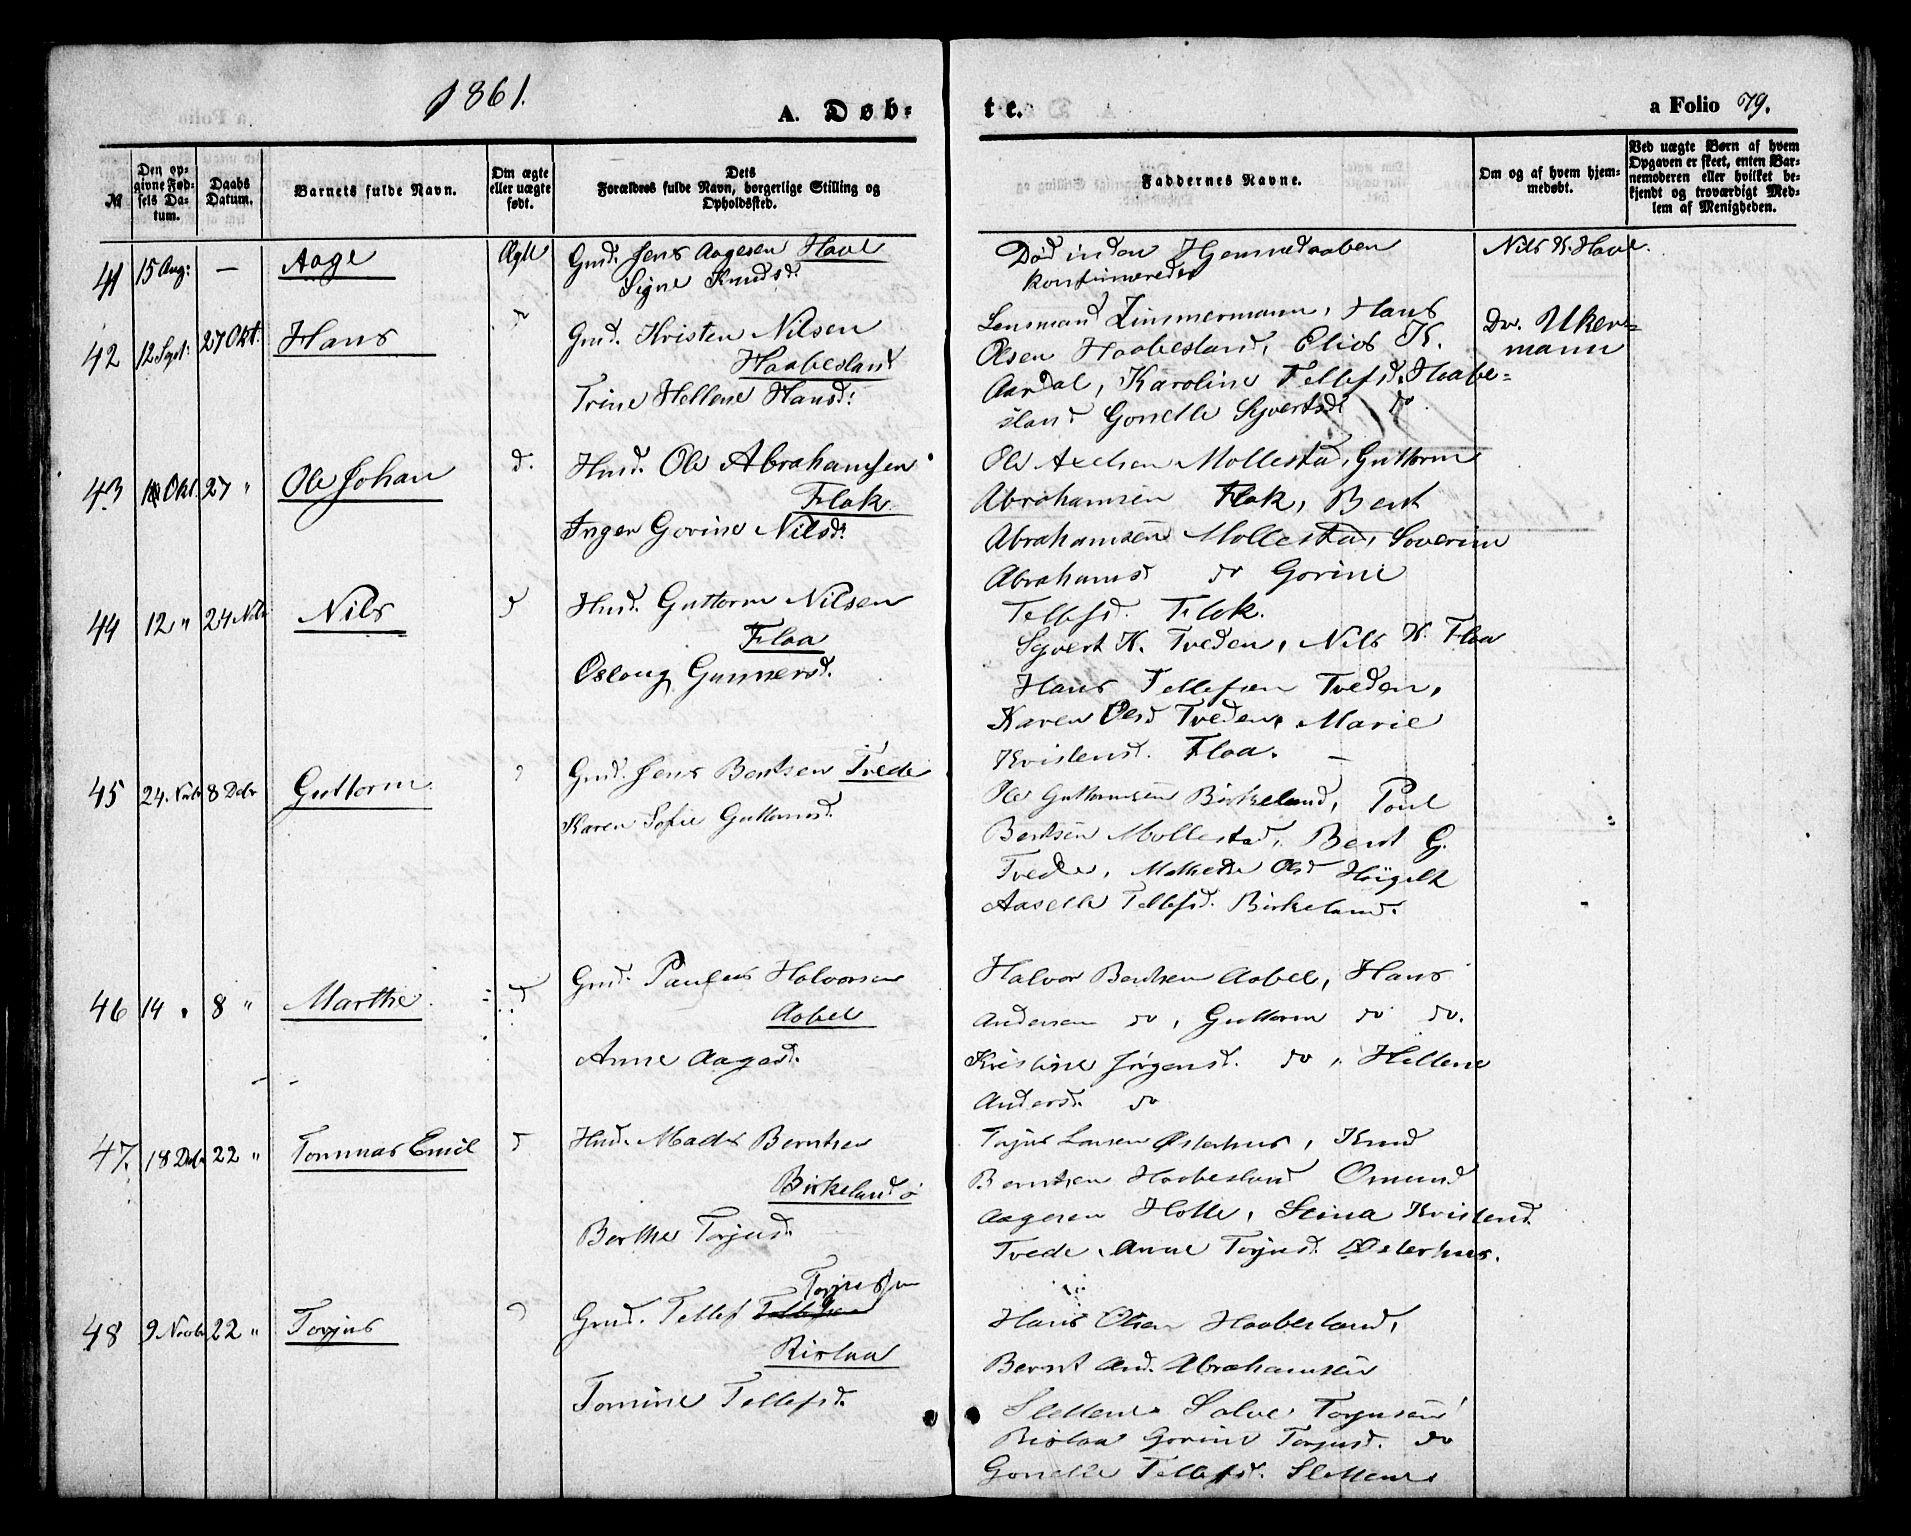 1861.
A. Døb-
te.
a Folio 79.
№
Den op-
givne Fød-
sels Da-
tum.
Daabs
Datum.
Barnets fulde Navn.
Om ægte
eller uægte
født.
Dets
Forældres fulde Navn, borgerlige Stilling og
Opholdssted.
Faddernes Navne.
Om og af hvem hjem-
medøbt.
Ved uægte Børn af hvem
Opgaven er skeet, enten Bar-
nemoderen eller hvilket be-
kjendt og troværdigt Med-
lem af Menigheden.
41 15 Aug: — Aage Ægte
Gmd. Jens Aagesen Have
Signe Knudsd.
Død inden Hjemmedaaben
konfirmeredes
Nils K. Have.
42 12 Sept: 27 Okt. Hans do
Gmd. Kristen Nilsen
Haabesland
Trine Hellene Hansd:
Lensmand Zimmermann, Hans
Olsen Haabesland, Elias K.
Aardal, Karoline Tellefsd. Haabe-
sland Gonelle Syvertsd do.
Dr. Uker-
mann
43 Okt. 27 " Ole Johan d.
Husd. Ole Abrahamsen
Flak
Inger Gorine Nilsd:
Ole Axelsen Mollestad, Guttorm
Abrahamsen Flak, Bent
Abrahamsen Mollestad, Severine
Abrahamsd do Gorine
Tellefsd. Flak.
44 12 " 24 Nvbr Nils d
Husd. Guttorm Nilsen
Flaa
Oslaug Gunnersd.
Syvert K. Tveden, Nils K. Flaa
Hans Tellefsen Tveden,
Karen Olsd Tveden, Marie
Kristensd. Flaa. —
45 24. Nvbr 8 Debr Guttorm
Gmd. Jens Bentsen Tvede
Karen Sofie Guttormsd.
Ole Guttormsen Birkeland, Poul
Bentsen Mollestad, Bent G.
Tvede, Mathilde Olsd Høigilt
Aaselle Tellefsd. Birkeland.
46 14 " 8 " Marthe d
Gmd. Paulus Halvorsen
Aabel
Anne Aagesd.
Halvor Bentsen Aabel, Hans
Andersen do, Guttorm do do.
Kristine Jørgensd. do, Hellene
Andersd. do
47. 18 Debr 22 " Tommas Emil d
Husd. Mads Berntsen
Birkeland
Berthe Torjusd.
Torjus Larsen Østerhus, Knud
Berntsen Haabesland Omund
Aagesen Holte, Stina Kristensd.
Tvede. Anne Torjusd. Østerhus.
48 9 Novbr 22 " Torjus
Torjussen
Gmd. Tellef Tellefsen
Rislaa
Tomine Tellefsd.
Hans Olsen Haabesland,
Bernt And. Abrahamsen
Slettene Salve Torjusen
Rislaa Gorine Torjusd. do
Gonelle Tellefsd. Slettene